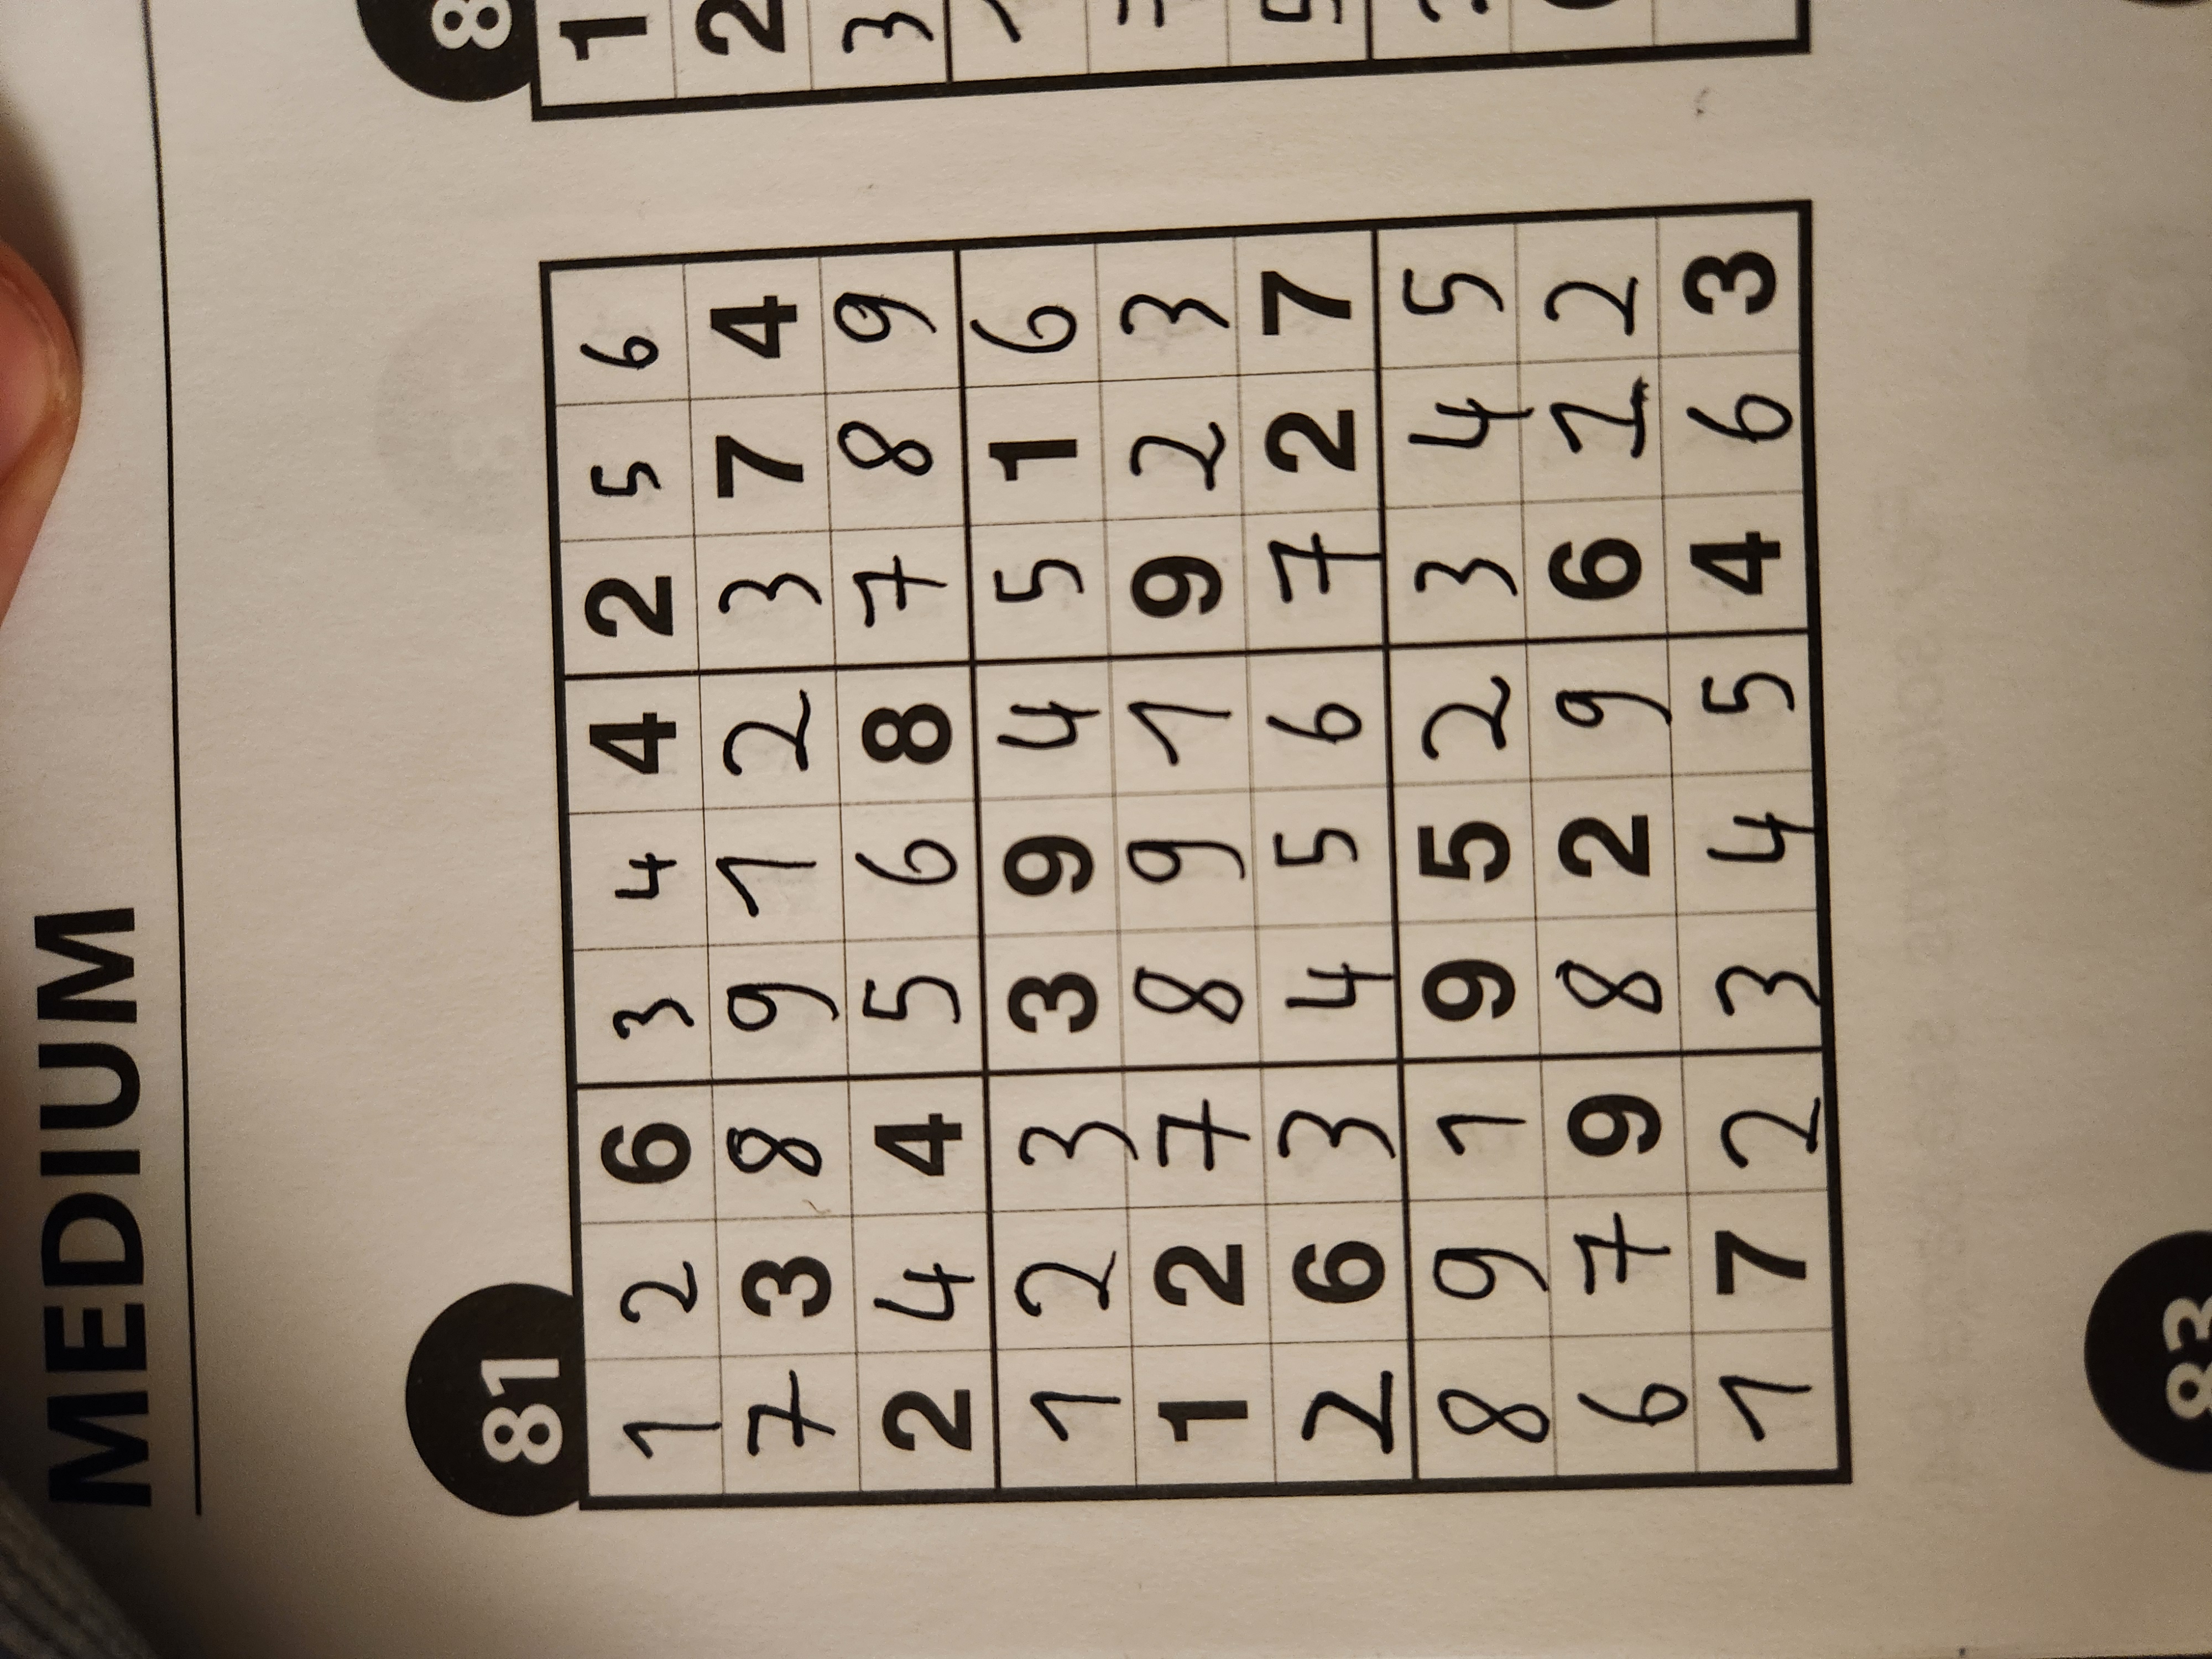 MEDIUM
81
8
1 2 6 3 4 4 2 5 6
7 3 8 9 1 2 3 7 4
2 4 4 5 6 8 7 8 9
1 2 3 3 9 4 5 1 6
1 2 7 8 9 1 9 2 3
2 6 3 4 5 6 7 2 7
8 9 1 9 5 2 3 4 5
6 7 9 8 2 9 6 1 2
1 7 2 3 4 5 4 6 3
1
2
3
83